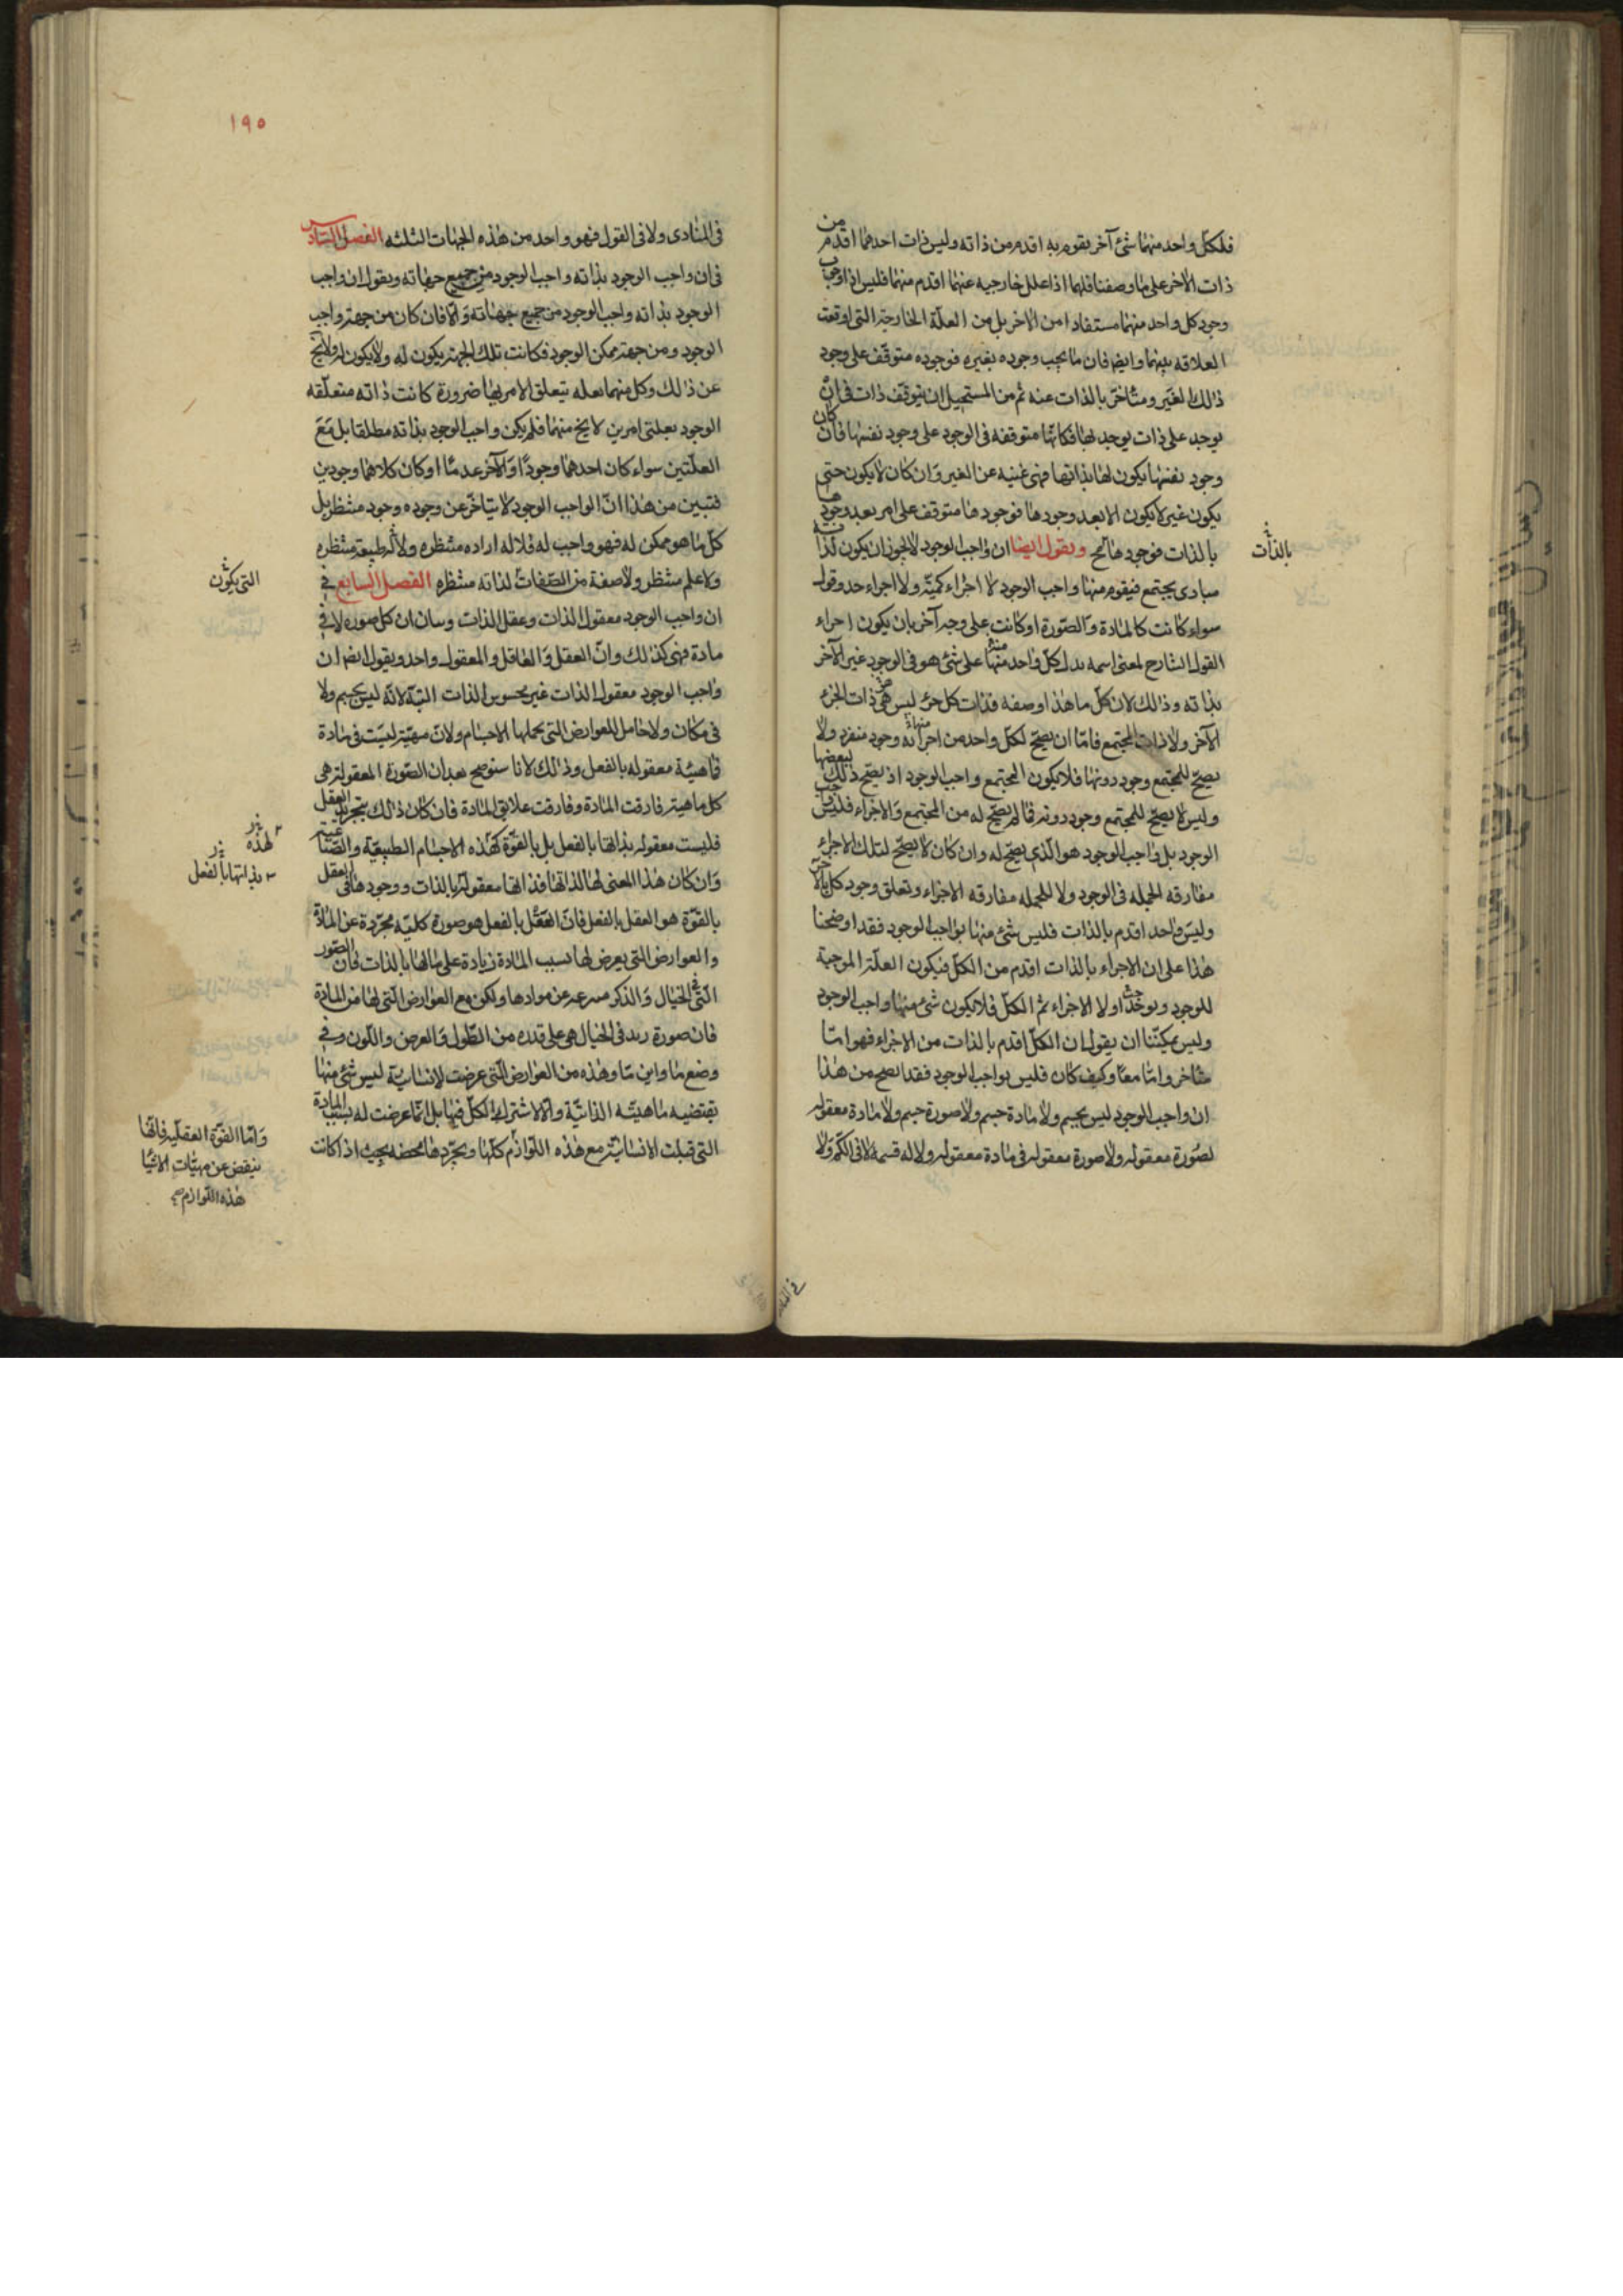 فلكل واحد منهما شئ آخر يقوم به اقدم من ذاته وليس ذات احدهما اقدم من
ذات الآخر على ما وصفنا فلهما اذا علل خارجيه عنهما اقدم منهما فليس اذا وجوب
وجود كل واحد منهما مستفادا من الآخر بل من العلّة الخارجة التى اوقعت
العلاقه بينهما وايضا فان ما يجب وجوده بغيره فوجوده متوقف على وجود
ذلك الغير ومتاخّر بالذات عنه ثم من المستحيل ان يتوقف ذات فى ان
يوجد على ذات يوجد بها فكانها متوقفه فى الوجود على وجود نفسها فان كان
وجود نفسها يكون لها بذاتها فهى غنيه عن الغير وان كان لا يكون حتى
يكون غير لا يكون الا بعد وجودها فوجودها متوقف على امر بعد وجودها
بالذات فوجودها مح ونقول ايضا ان واجب الوجود لا يجوز ان يكون لذاته
بالذات
مبادى يجتمع فيقوم منها واجب الوجود لا اجزاء كميّة ولا اجزاء حد وقول
سواء كانت كالمادة والصّورة او كانت على وجه آخر بان يكون اجزاء
القول الشارح لمعنى اسمه يدل كلّ واحد منها على شئ هو فى الوجود غير الآخر
بذاته وذلك لان كلّ ما هذا وصفه فذات كل جزء ليس هى ذات الجزء
الآخر ولا ذات المجتمع فامّا ان يصحّ لكلّ واحد من اجزائه وجود منفرد ولا
يصحّ للمجتمع وجود دونها فلا يكون المجتمع واجب الوجود او يصحّ ذلك لبعضها
وليس لا يصحّ للمجتمع وجود دونه فما لم يصحّ له من المجتمع والاجزاء فليس واجب
الوجود بل واجب الوجود هو الّذى يصحّ له وان كان لا يصحّ لتلك الاجزاء
مفارقه الجمله فى الوجود ولا للجمله مفارقه الاجزاء وتعلق وجود كل بالآخر
وليس واحد اقدم بالذات فليس شئ منها بواجب الوجود فقد اوضحنا
هذا على ان الاجزاء بالذات اقدم من الكلّ فيكون العلّة الموجبة
للوجود يوجد اولا الاجزاء ثم الكلّ فلا يكون شئ منها واجب الوجود
وليس يمكننا ان يقول ان الكلّ اقدم بالذات من الاجزاء فهو امّا
متاخر وامّا معا وكيف كان فليس بواجب الوجود فقد اتضح من هذا
ان واجب الوجود ليس بجسم ولا مادة جسم ولا صورة جسم ولا مادة معقوله
لصورة معقوله ولا صورة معقوله فى مادة معقوله ولا له قسمة لا فى الكم ولا
١٩٥
فى المبادى ولا فى القول فهو واحد من هذه الجهات الثلثه الفصل السادس
فى ان واجب الوجود بذاته واجب الوجود من جميع جهاته ونقول ان واجب
الوجود بذاته واجب الوجود من جميع جهاته والّا فان كان من جهة واجب
الوجود ومن جهة ممكن الوجود فكانت تلك الجهة يكون له ولا يكون له ولا يخ
عن ذلك وكل منهما بعله يتعلق الامر بها ضرورة كانت ذاته متعلّقه
الوجود بعلتى امرين لا يخ منهما فلم يكن واجب الوجود بذاته مطلقا بل مع
العلّتين سواء كان احدهما وجودًا والآخر عدمًا او كان كلاهما وجودين
فتبين من هذا انّ الواجب الوجود لا يتاخّر عن وجوده وجود منتظر بل
كلّ ما هو ممكن له فهو واجب له فلا له ارادة منتظره ولا له طبيعة منتظره
ولا علم منتظر ولا صفة من الصّفات لذاته منتظره الفصل السابع فى
التى يكون
ان واجب الوجود معقول الذات وعقل الذات وبيان ان كل صورة لا فى
مادة فهى كذلك وانّ العقل والعاقل والمعقول واحد ونقول ايضا ان
واجب الوجود معقول الذات غير محسوس الذات البتّة لانّه ليس بجسم ولا
فى مكان ولا حامل للعوارض التى يحملها الاجسام ولانّ مهيّته ليست فى مادة
فماهيّته معقوله بالفعل وذلك لانا سنوضح بعد ان الصّورة المعقولة هى
كل ماهية فارقت المادة وفارقت علايق المادة فان كان ذلك بتجريد العقل
فليست معقوله بذاتها بالفعل بل بالقوّة كهذه الاجسام الطبيعيّة والصّناعيّة
لهذه
وان كان هذا المعنى لها لذاتها فذاتها معقولة بالذات ووجودها فى العقل
بذاتها بالفعل
بالقوّة هو العقل بالفعل فانّ العقل بالفعل هو صورة كليّه مجرّدة عن المادّة
والعوارض التى يعرض لها بسبب المادة زيادة على ما لها بالذات فان الصّور
الّتى فى الخيال والذكر عن موادها ولكن مع العوارض الّتى لها من المادّة
فان صورة زيد فى الخيال هى على قدره من الطّول والعرض واللّون وفى
وضع ما واين مّا وهذه من العوارض الّتى عرضت لانسانيّة ليس شئ منها
يقتضيه ماهيّته الذاتيّة والا لاشترك الكلّ فيها بل انّما عرضت له بسبب المادة
التى قبلت الانسانيّة مع هذه اللّوازم كلّها وتجرّدها محضه بحيث اذا كانت
وامّا القوّة العقليّه فانّها
ينقض عن مهيّات الاشيا
هذه اللّوازم صح
فى المبادى